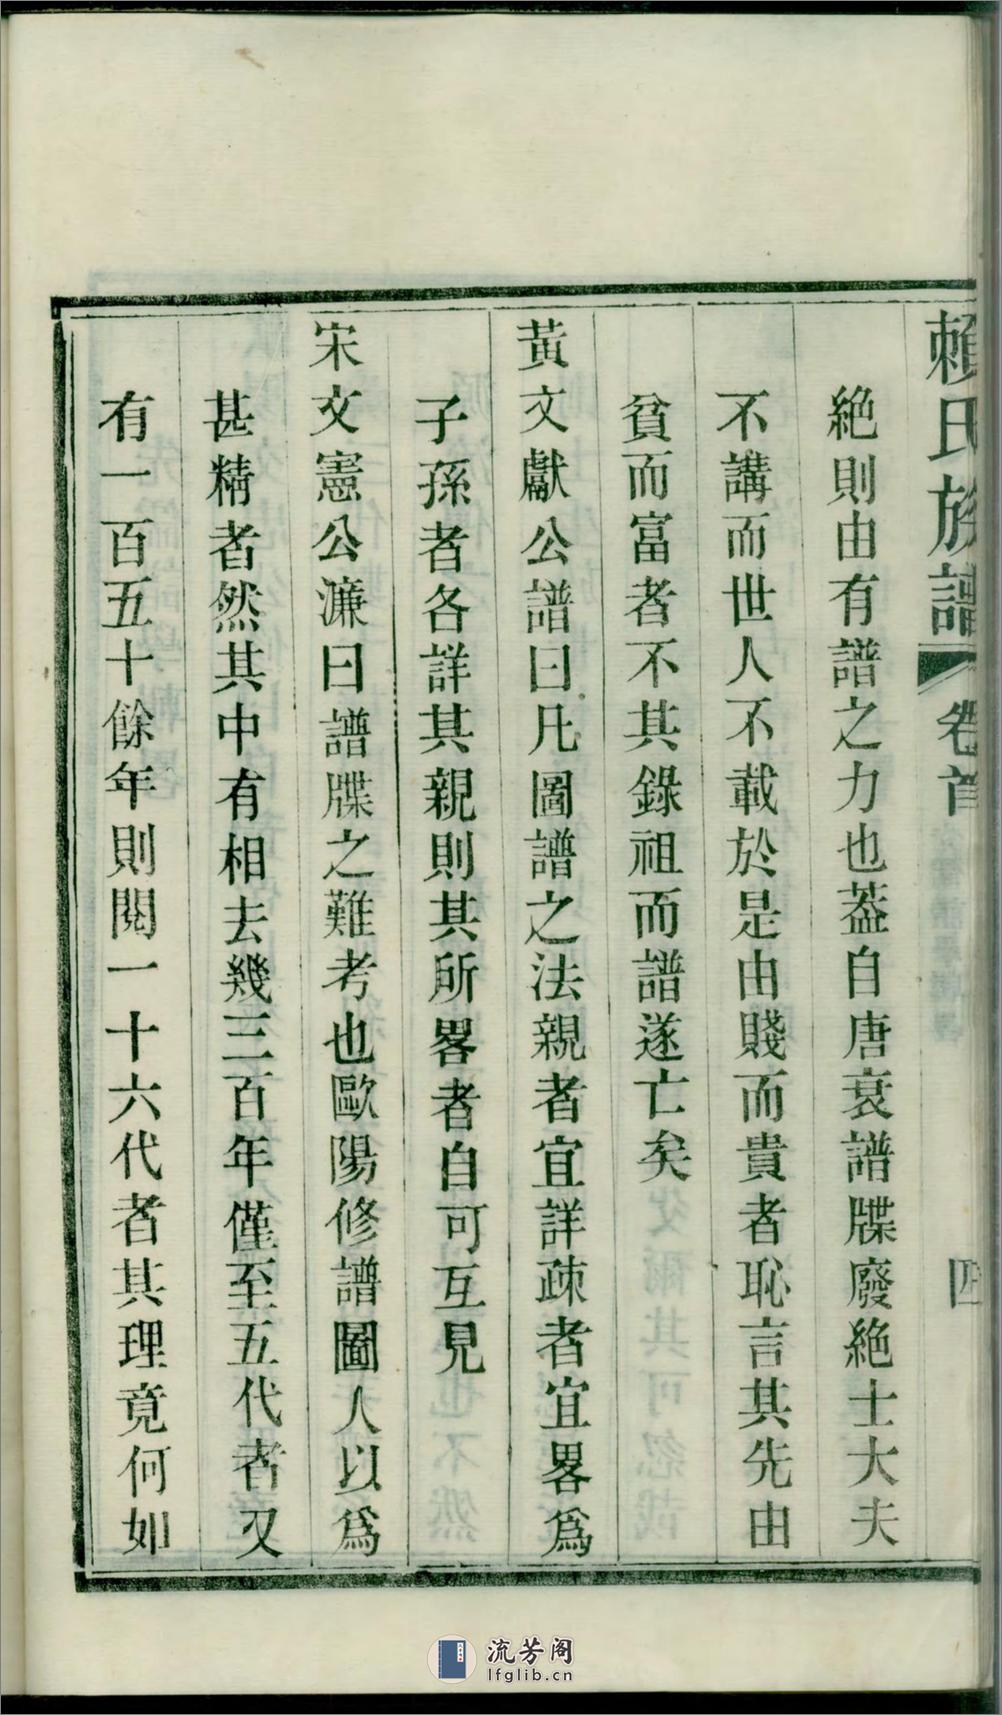 賴氏族譜 卷首 四
絕則由有譜之力也葢自唐衰譜牒廢絕士大夫
不講而世人不載於是由賤而貴者恥言其先由
貧而富者不其錄祖而譜遂亡矣
黃文獻公譜曰凡圖譜之法親者宜詳疎者宜畧爲
子孫者各詳其親則其所畧者自可互見
宋文憲公濂曰譜牒之難考也歐陽修譜圖人以爲
甚精者然其中有相去幾三百年僅至五代者又
有一百五十餘年則閱一十六代者其理竟何如
流芳阁
lfglib.cn